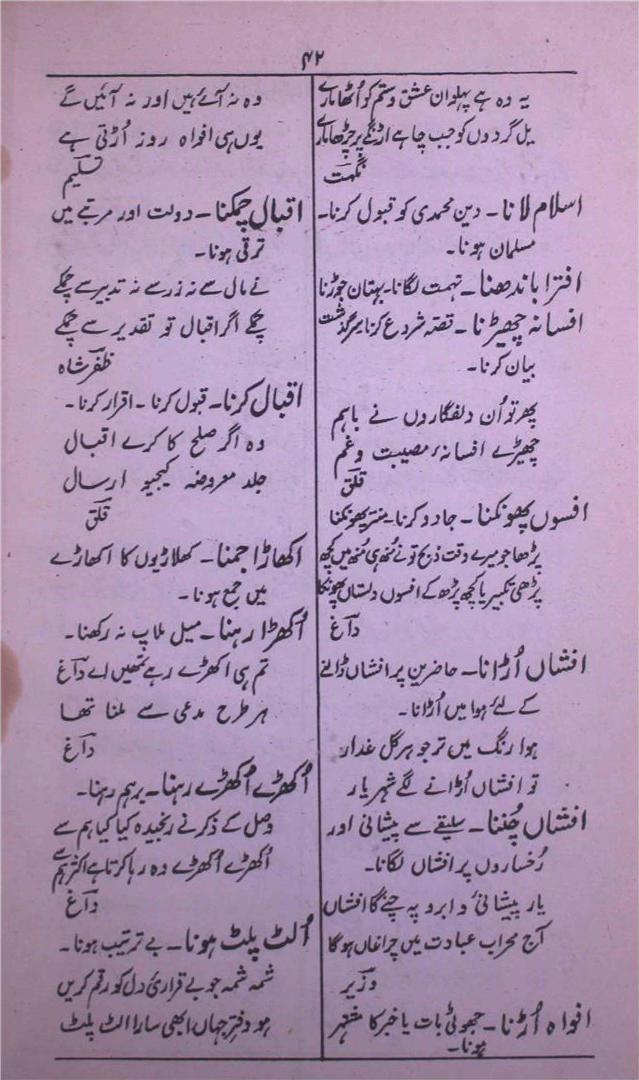 ۴۲
یہ وہ ہے پہلوان عشق رستم کو اُٹھا مارے
یل گردوں کو جب چاہے اڑنگے پر چڑھا مارے
نکہت
اسلام لانا۔ دین محمدی کو قبول کرنا۔
مسلمان ہونا۔
افترا باندھنا۔ تہمت لگانا۔ بہتان جوڑنا
افسانہ چھیڑنا۔ قصّہ شروع کرنا سرگذشت
بیان کرنا۔
پھر تو اُن دلفگاروں نے باہم
چھیڑے افسانہء مصیبت وغم
قلق
افسوں پھونکنا۔ جادو کرنا۔ منتر پھونکنا
پڑھا جو میرے وقت ذبح تو نے مُنھ ہی مُنھ میں کچھ
پڑھی تکبیر یا کچھ پڑھ کے افسوں دلستاں پھونکا
داغ
افشاں اُڑانا۔ حاضرین پر افشاں ڈالنے
کے لئے ہوا میں اُڑانا۔
ہوا رنگ میں تر جو ہر گل عذار
تو افشاں اُڑانے لگے شہریار
افشاں چُننا۔ سلیقے سے پیشانی اور
رُخساروں پر افشاں لگانا۔
یار پیشانیٔ و ابرو پہ چنے گا افشاں
آج محراب عبادت میں چراغاں ہوگا
وزیر
افواہ اُڑنا۔ جھوٹی بات یا خبر کا مشتہر
ہونا۔
وہ نہ آئے ہیں اور نہ آئیں گے
یوں ہی افواہ روز اُڑتی ہے
تسلیم
اقبال چمکنا۔ دولت اور مرتبے میں
ترقی ہونا۔
نے مال سے نہ زر سے نہ تدبیر سے چمکے
چمکے اگر اقبال تو تقدیر سے چمکے
ظفر شاہ
اقبال کرنا۔ قبول کرنا۔ اقرار کرنا۔
وہ اگر صلح کا کرے اقبال
جلد معروضہ کیجیو ارسال
قلق
اکھاڑا جمنا۔ کھلاڑیوں کا اکھاڑے
میں جمع ہونا۔
اُکھڑا رہنا۔ میل ملاپ نہ رکھنا۔
تم ہی اکھڑے رہے تمھیں اے داغ
ہر طرح مدعی سے ملنا تھا
داغ
اُکھڑے اُکھڑے رہنا۔ برہم رہنا۔
وصل کے ذکر نے رنجیدہ کیا کیا ہم سے
اُکھڑے اُکھڑے وہ رہا کرتا ہے اکثر ہم سے
داغ
اُلٹ پلٹ ہونا۔ بے ترتیب ہونا۔
شمہ شمہ جو بے قراریٔ دل کو رقم کریں
ہو دفتر جہاں ابھی سارا الٹ پلٹ